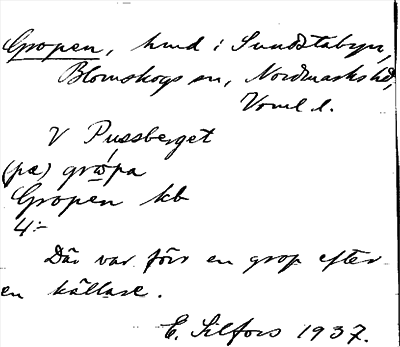 Gropen, hmd i Sundstabyn,
Blomskogs sn, Nordmarks hd,
Värml. l.
V Pussberget
(pæ) grὼpa
Gropen kb
4:-
Där var förr en grop efter
en källare.
E. Silfors 1937.